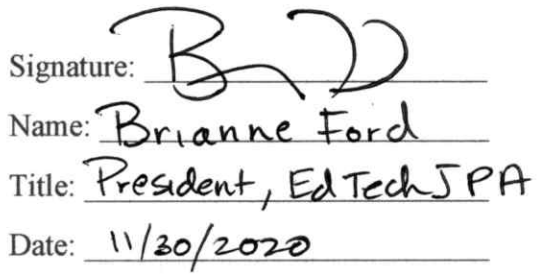 Signature:
Name: Brianne Ford
Title: President, EdTechJPA
Date: 11/30/2020